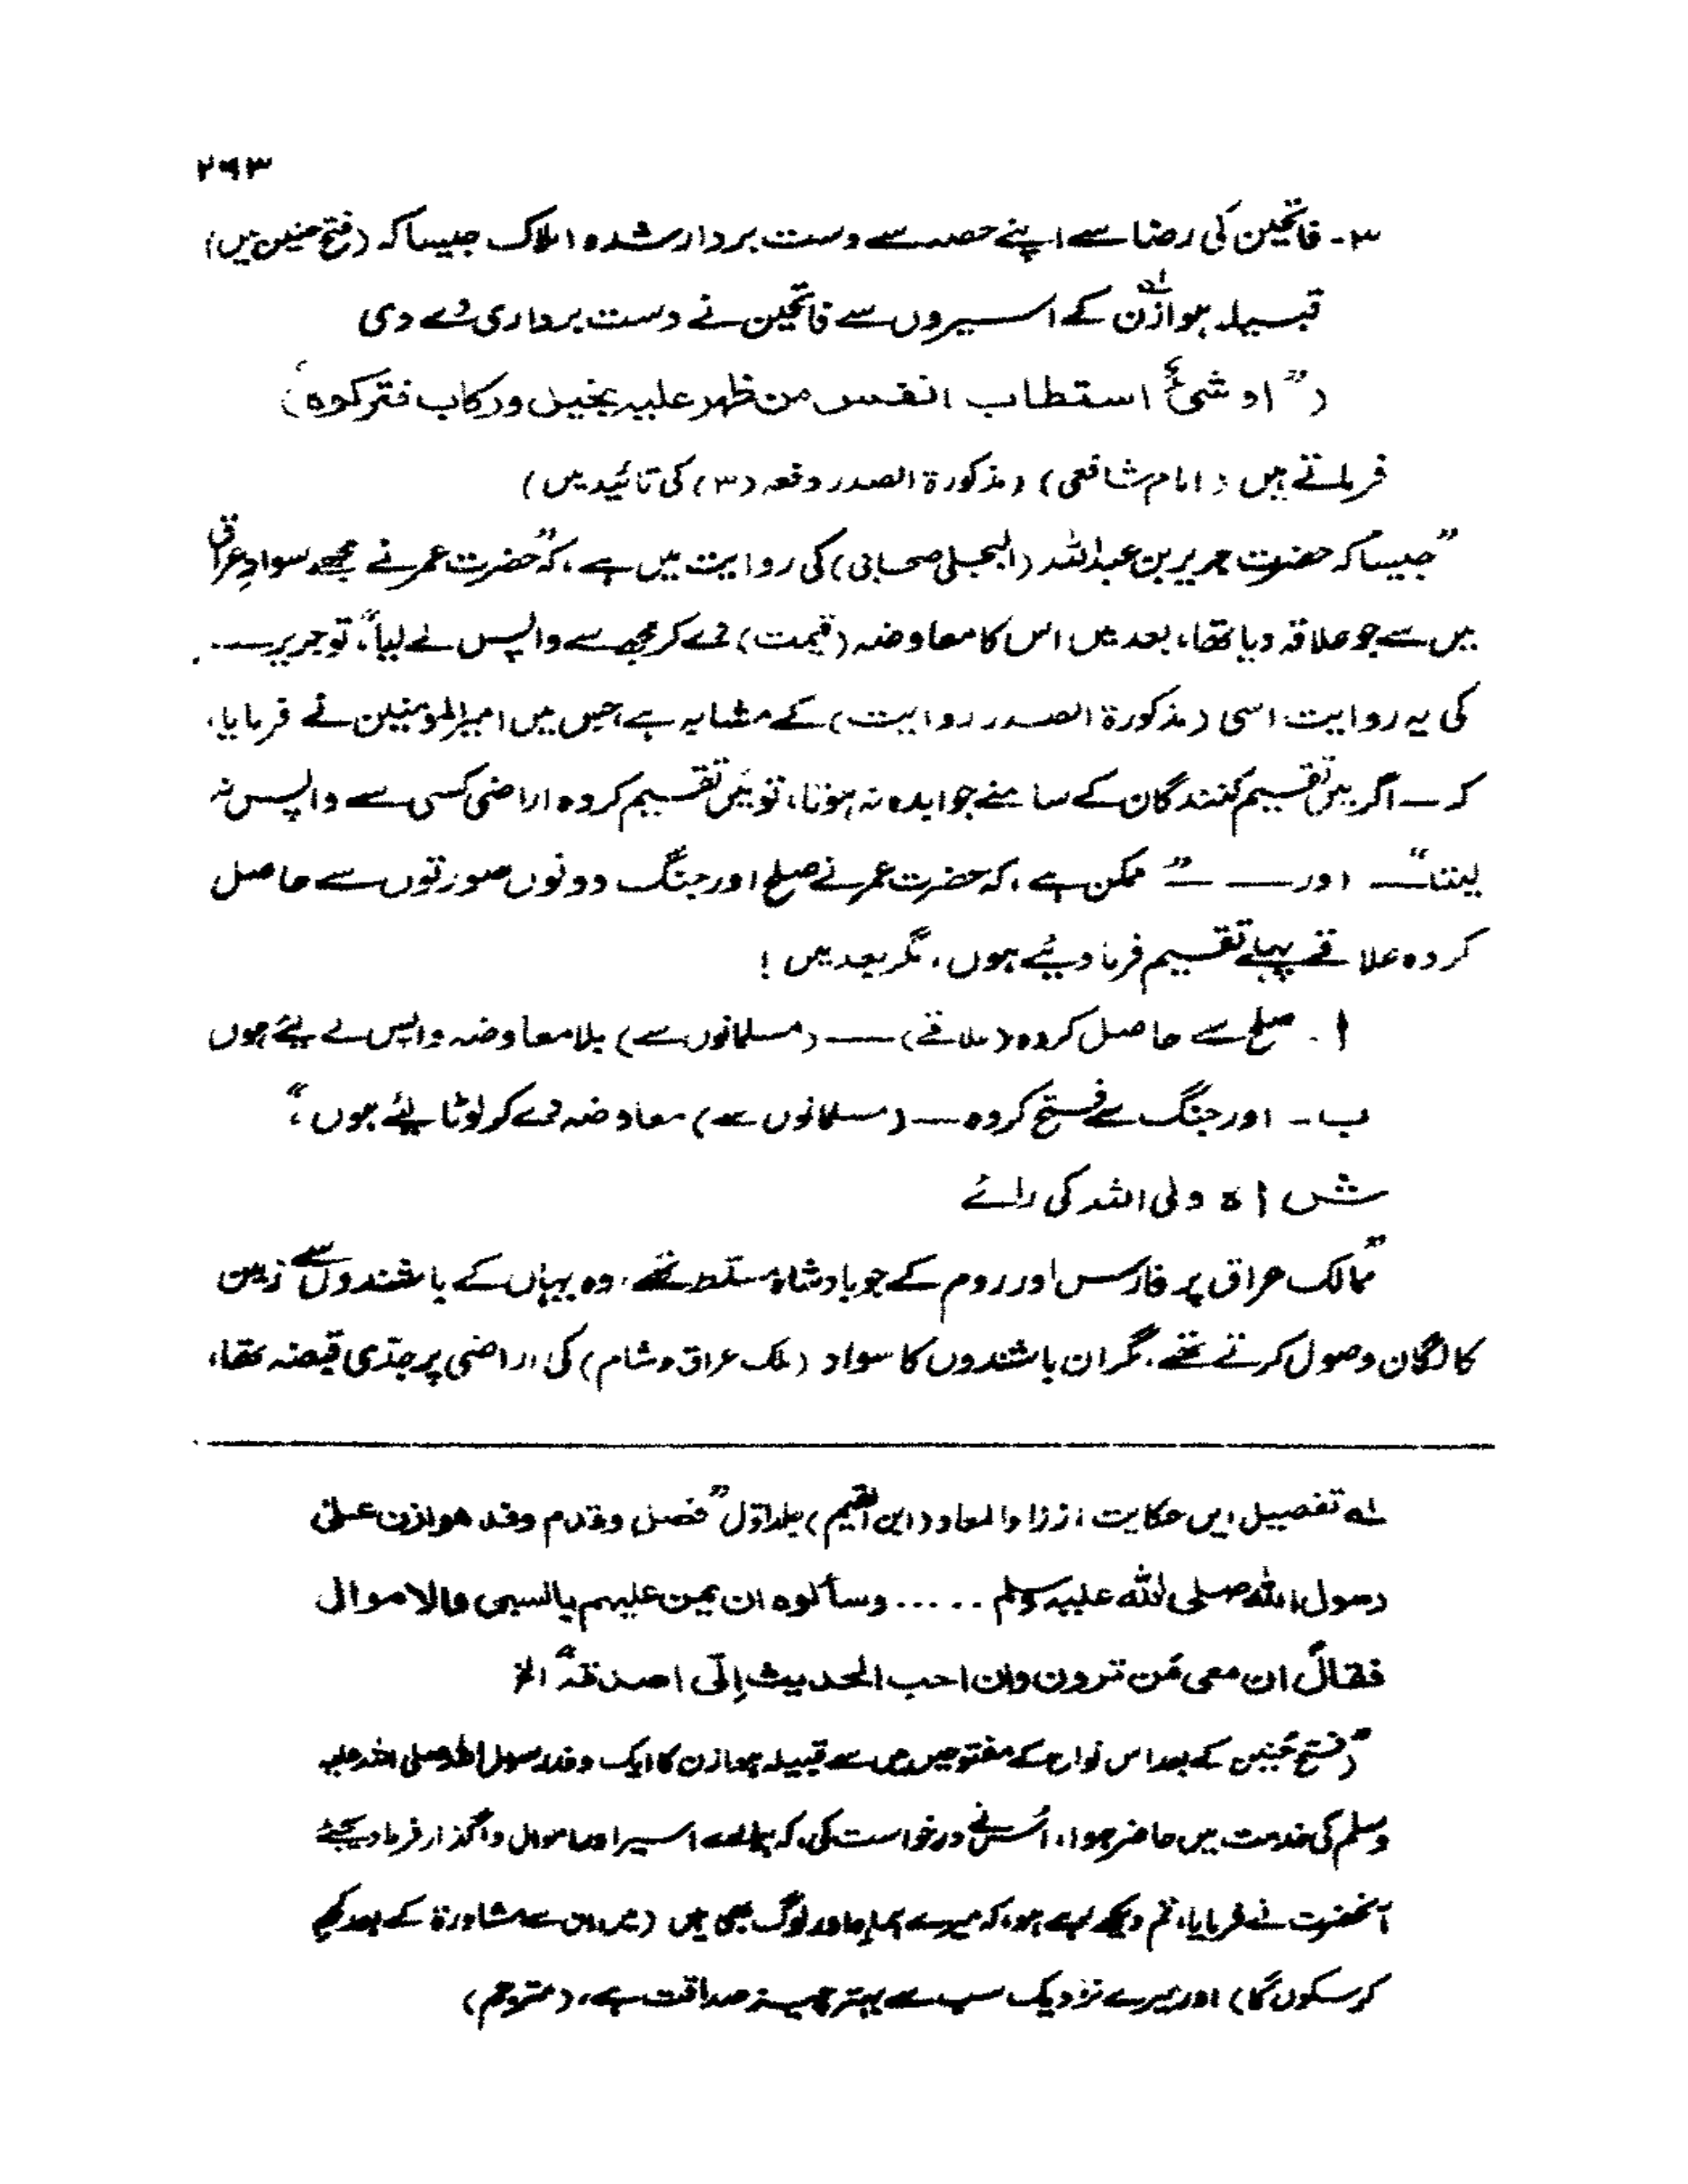 ۲۹۳
۳۔ فاتحین کی رضا سے اپنے حصہ سے دست بردار شدہ املاک جیسا کہ (فتح حنین میں)
قبیلہ ہوازن لہ کے اسیروں سے فاتحین نے دست برداری دے دی
(”او شیٔ استطاب انفس من ظهر علیہ بخیل ورکاب فترکوہ“)
فرماتے ہیں (امام شافعی) (مذکورۃ الصدر دفعہ (۳) کی تائید میں)
”جیسا کہ حضرت جریر بن عبداللہ (البجلی صحابی) کی روایت میں ہے، کہ ”حضرت عمر نے مجھے سواد عراق
میں سے جو علاقہ دیا تھا، بعد میں اس کا معاوضہ (قیمت) دے کر مجھ سے واپس لے لیا“، تو جریر ــــ
کی یہ روایت اسی (مذکورۃ الصدر روایت) کے مشابہ ہے جس میں امیر المومنین نے فرمایا،
کہ ــــ اگر میں تقسیم کنندگان کے سامنے جوابدہ نہ ہوتا، تو میں تقسیم کردہ اراضی کسی سے واپس نہ
لیتا“ ــــ اور ــــ ”ممکن ہے، کہ حضرت عمر نے صلح اور جنگ دونوں صورتوں سے حاصل
کردہ علاقے پہلے تقسیم فرما دیئے ہوں، مگر بعد میں !
ا۔ صلح سے حاصل کردہ (علاقے) ــــ (مسلمانوں سے) بلا معاوضہ واپس لے لئے ہوں
ب۔ اور جنگ سے فتح کردہ ــــ (مسلمانوں سے) معاوضہ دے کر لوٹا لئے ہوں،“
شاہ ولی اللہ کی رائے
”ممالک عراق پر فارس اور روم کے جو بادشاہ مسلط تھے، وہ یہاں کے باشندوں سے زمین
کا لگان وصول کرتے تھے۔ مگر ان باشندوں کا سواد (ملک عراق و شام) کی اراضی پر جدّی قبضہ تھا،
لہ تفصیل ایں حکایت از زاد المعاد (ابن القیم) جلد اوّل ”فصل وقدم وفد هوازن علی
رسول اللہ صلی اللہ علیہ وسلم ..... وسألوہ ان یمن علیهم بالسبی والاموال
فقال ان معی من ترون وان احب الحدیث إلّی اصدقہ“ الخ
”(فتح حنین کے بعد اس نواح کے مفتوحین میں سے قبیلہ ہوازن کا ایک وفد رسول اللہ صلی اللہ علیہ
وسلم کی خدمت میں حاضر ہوا، اُس نے درخواست کی، کہ ہمارے اسیر اور اموال واگذار فرما دیجئے
آنحضرت نے فرمایا، تم دیکھ رہے ہو، کہ میرے ہمراہ اور لوگ بھی ہیں (میں ان سے مشاورۃ کے بعد کچھ
کر سکوں گا) اور میرے نزدیک سب سے بہتر چیز صداقت ہے، (مترجم)